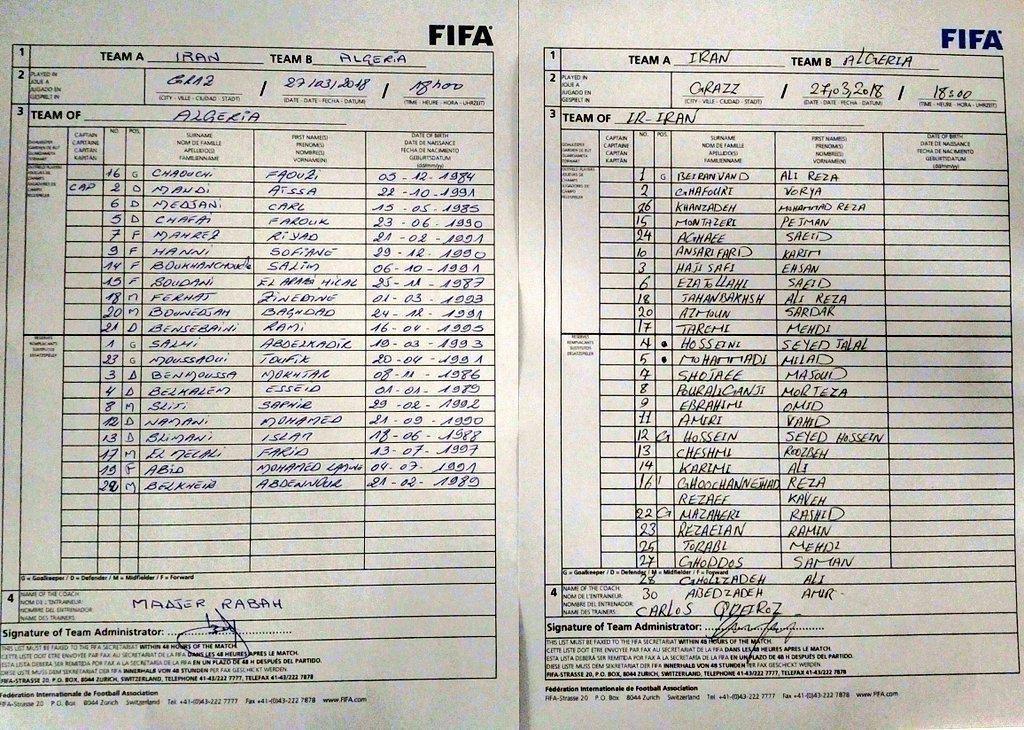 FIFA
1 TEAM A IRAN TEAM B ALGERIA
2 PLAYED IN JOUE A JUGADO EN GESPIELT IN GRAZ / 27/03/2018 / 18h00
(CITY - VILLE - CIUDAD - STADT) (DATE - DATE - FECHA - DATUM) (TIME - HEURE - HORA - UHRZEIT)
3 TEAM OF ALGERIA
CAPTAIN CAPITAINE CAPITÁN KAPITÄN
NO. POS.
SURNAME NOM DE FAMILLE APELLIDO(S) FAMILIENNAME
FIRST NAME(S) PRENOM(S) NOMBRE(S) VORNAME(N)
DATE OF BIRTH DATE DE NAISSANCE FECHA DE NACIMIENTO GEBURTSDATUM (dd/mm/yy)
16 G CHAOUCHI FAOUZI 05-12-1984
CAP 2 D MANDI AÏSSA 22-10-1991
6 D MEDJANI CARL 15-05-1985
5 D CHAFAI FAROUK 23-06-1990
7 F MAHREZ RIYAD 21-02-1991
9 F HANNI SOFIANE 29-12-1990
14 F BOUKHANCHOUCHE SALIM 06-10-1991
15 F SOUDANI EL ARABI HILAL 25-11-1987
18 M FERHAT ZINEDINE 01-03-1993
20 M BOUNEDJAH BAGHDAD 24-12-1991
21 D BENSEBAINI RAMI 16-04-1995
RESERVES REMPLAÇANTS SUSTITUTOS ERSATZSPIELER
1 G SALHI ABDELKADIR 19-03-1993
23 G MOUSSAOUI TOUFIK 20-04-1991
3 D BENMOUSSA MOKHTAR 08-11-1986
4 D BELKALEM ESSEID 01-01-1989
8 M SLITI SAPHIR 29-02-1992
12 D NAMANI MOHAMED 21-09-1990
13 D SLIMANI ISLAM 18-06-1988
17 M EL MELALI FARID 13-07-1997
19 F ABID MOHAMED LAMINE 04-07-1991
22 M BELKHEIR ABDENNOUR 21-02-1989
G = Goalkeeper / D = Defender / M = Midfielder / F = Forward
4 NAME OF THE COACH NOM DE L'ENTRAINEUR NOMBRE DEL ENTRENADOR NAME DES TRAINERS
MADJER RABAH
Signature of Team Administrator:
THIS LIST MUST BE FAXED TO THE FIFA SECRETARIAT WITHIN 48 HOURS OF THE MATCH.
CETTE LISTE DOIT ETRE ENVOYEE PAR FAX AU SECRETARIAT DE LA FIFA DANS LES 48 HEURES APRES LE MATCH.
ESTA LISTA DEBERA SER REMITIDA POR FAX A LA SECRETARIA DE LA FIFA EN UN PLAZO DE 48 H DESPUÉS DEL PARTIDO.
DIESE LISTE MUSS DEM SEKRETARIAT DER FIFA INNERHALB VON 48 STUNDEN PER FAX GESCHICKT WERDEN.
FIFA-STRASSE 20, P.O. BOX, 8044 ZURICH, SWITZERLAND, TELEPHONE 41-43/222 7777, TELEFAX 41-43/222 7878
Fédération Internationale de Football Association
FIFA-Strasse 20 P.O. Box 8044 Zurich Switzerland Tel +41-(0)43-222 7777 Fax +41-(0)43-222 7878 www.FIFA.com
FIFA
1 TEAM A IRAN TEAM B ALGERIA
2 PLAYED IN JOUE A JUGADO EN GESPIELT IN GRAZZ / 27,03,2018 / 18:00
(CITY - VILLE - CIUDAD - STADT) (DATE - DATE - FECHA - DATUM) (TIME - HEURE - HORA - UHRZEIT)
3 TEAM OF IR-IRAN
CAPTAIN CAPITAINE CAPITÁN KAPITÄN
NO. POS.
SURNAME NOM DE FAMILLE APELLIDO(S) FAMILIENNAME
FIRST NAME(S) PRENOM(S) NOMBRE(S) VORNAME(N)
DATE OF BIRTH DATE DE NAISSANCE FECHA DE NACIMIENTO GEBURTSDATUM (dd/mm/yy)
1 G BEIRANVAND ALI REZA
2 GHAFOURI VORYA
26 KHANZADEH MOHAMMAD REZA
15 MONTAZERI PEJMAN
24 AGHAEE SAEID
10 ANSARIFARD KARIM
3 HAJI SAFI EHSAN
6 EZATOLLAHI SAEID
18 JAHANBAKHSH ALI REZA
20 AZMOUN SARDAR
17 TAREMI MEHDI
RESERVES REMPLAÇANTS SUSTITUTOS ERSATZSPIELER
4 HOSSEINI SEYED JALAL
5 MOHAMMADI MILAD
7 SHOJAEE MASOUD
8 POURALIGANJI MORTEZA
9 EBRAHIMI OMID
11 AMIRI VAHID
12 G HOSSEIN SEYED HOSSEIN
13 CHESHMI ROOZBEH
14 KARIMI ALI
16 GHOOCHANNEJHAD REZA
REZAEE KAVEH
22 G MAZAHERI RASHID
23 REZAEIAN RAMIN
25 TORABI MEHDI
27 GHODDOS SAMAN
G = Goalkeeper / D = Defender / M = Midfielder / F = Forward
28 GHOLIZADEH ALI
30 ABEDZADEH AMIR
4 NAME OF THE COACH NOM DE L'ENTRAINEUR NOMBRE DEL ENTRENADOR NAME DES TRAINERS
CARLOS QUEIROZ
Signature of Team Administrator:
THIS LIST MUST BE FAXED TO THE FIFA SECRETARIAT WITHIN 48 HOURS OF THE MATCH.
CETTE LISTE DOIT ETRE ENVOYEE PAR FAX AU SECRETARIAT DE LA FIFA DANS LES 48 HEURES APRES LE MATCH.
ESTA LISTA DEBERA SER REMITIDA POR FAX A LA SECRETARIA DE LA FIFA EN UN PLAZO DE 48 H DESPUÉS DEL PARTIDO.
DIESE LISTE MUSS DEM SEKRETARIAT DER FIFA INNERHALB VON 48 STUNDEN PER FAX GESCHICKT WERDEN.
FIFA-STRASSE 20, P.O. BOX, 8044 ZURICH, SWITZERLAND, TELEPHONE 41-43/222 7777, TELEFAX 41-43/222 7878
Fédération Internationale de Football Association
FIFA-Strasse 20 P.O. Box 8044 Zurich Switzerland Tel +41-(0)43-222 7777 Fax +41-(0)43-222 7878 www.FIFA.com